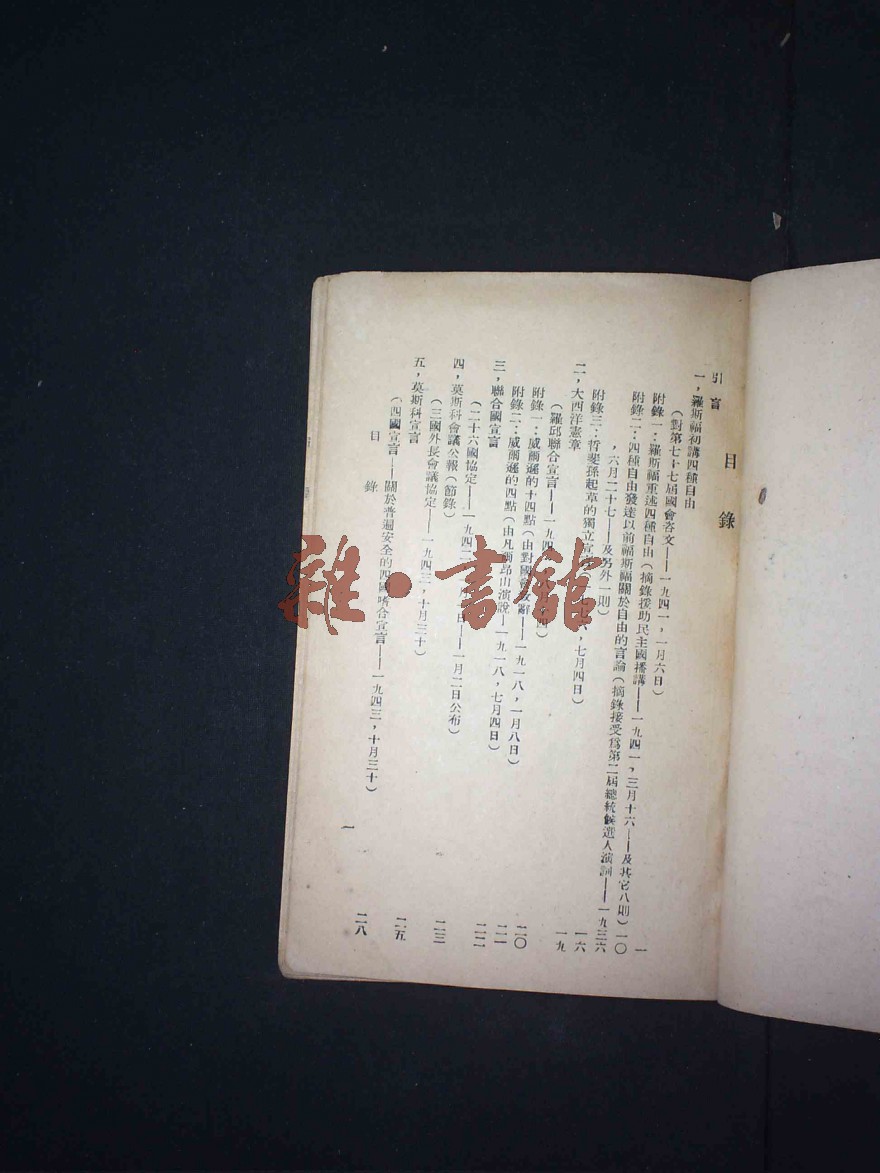 目錄
引言
一，羅斯福初講四種自由
（對第七十七屆國會咨文——一九四一，一月六日）一
附錄一：羅斯福重述四種自由（摘錄援助民主國播講——一九四一，三月十六——及其它八則）一〇
附錄二：四種自由發達以前福斯福關於自由的言論（摘錄接受爲第二屆總統候選人演詞——一九三六
，六月二十七——及另外一則）一六
附錄三：哲斐孫起草的獨立宣 七月四日）一九
二，大西洋憲章
（羅邱聯合宣言——一九四 二〇
附錄一：威爾遜的十四點（由對國會 辭——一九一八，一月八日）二一
附錄二：威爾遜的四點（由凡爾昂山演說——一九一八，七月四日）二二
三，聯合國宣言
（二十六國協定——一九四二 月 日——一月二日公布）二三
四，莫斯科會議公報（節錄）
（三國外長會議協定——一九四三，十月三十）二五
五，莫斯科宣言
（四國宣言——關於普遍安全的四國 合宣言——一九四三，十月三十）二八
目錄
一
雜·書館